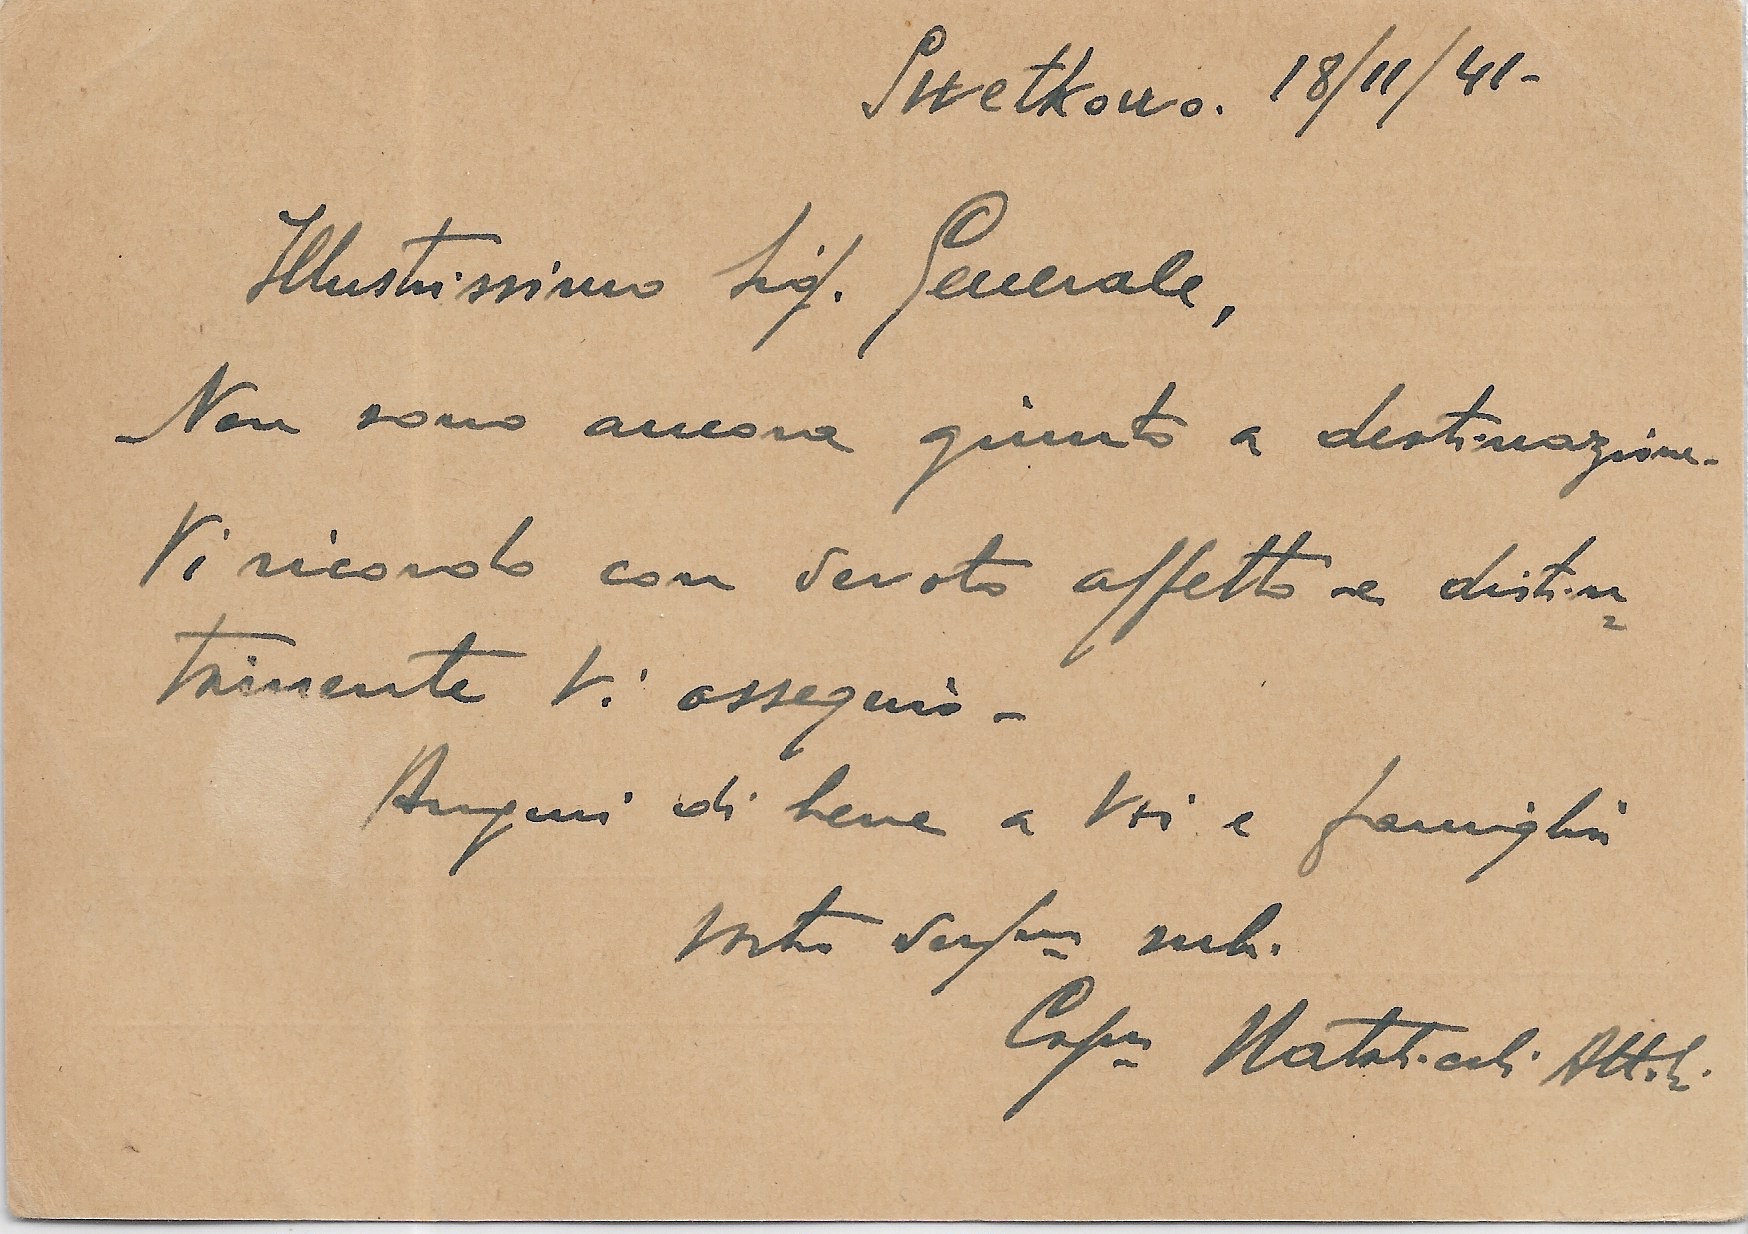 Swetkowo. 18/11/41-
Illustrissimo Sig. Generale,
Non sono ancora giunto a destinazione.
Vi ricordo con devoto affetto e distin=
tamente Vi ossequio -
Auguri di bene a Voi e famiglia
Vostro
Attili.